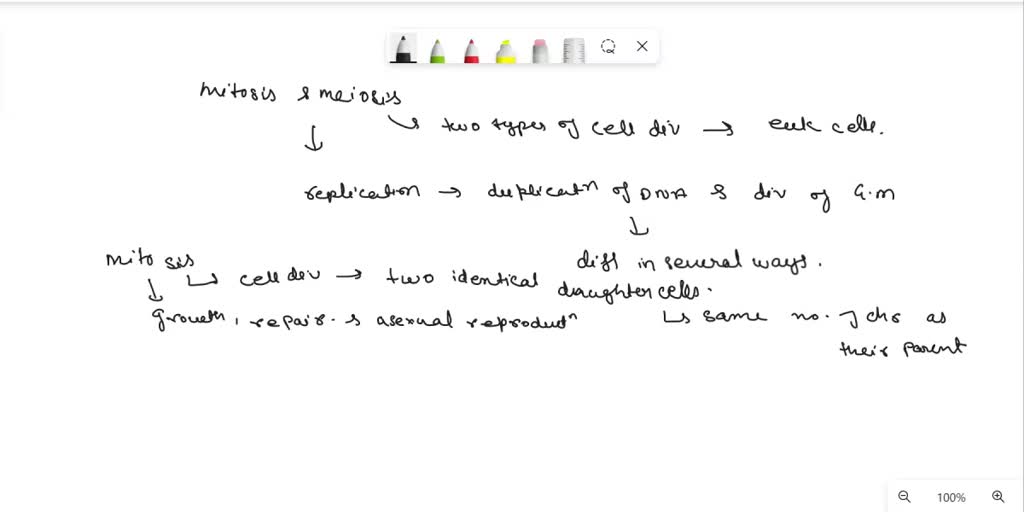 mitosis & meiosis
↳ two types of cell div → euk cells.
↓
replication → duplicatn of DNA & div of G.M
↓
diff in several ways.
mitosis
↳ cell div → two identical daughter cells.
↓
growth, repair & asexual reproductn
↳ same no. of chs as their parent
100%